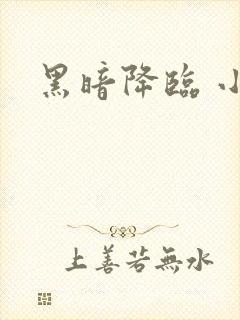 黑暗降臨 小
上善若無水